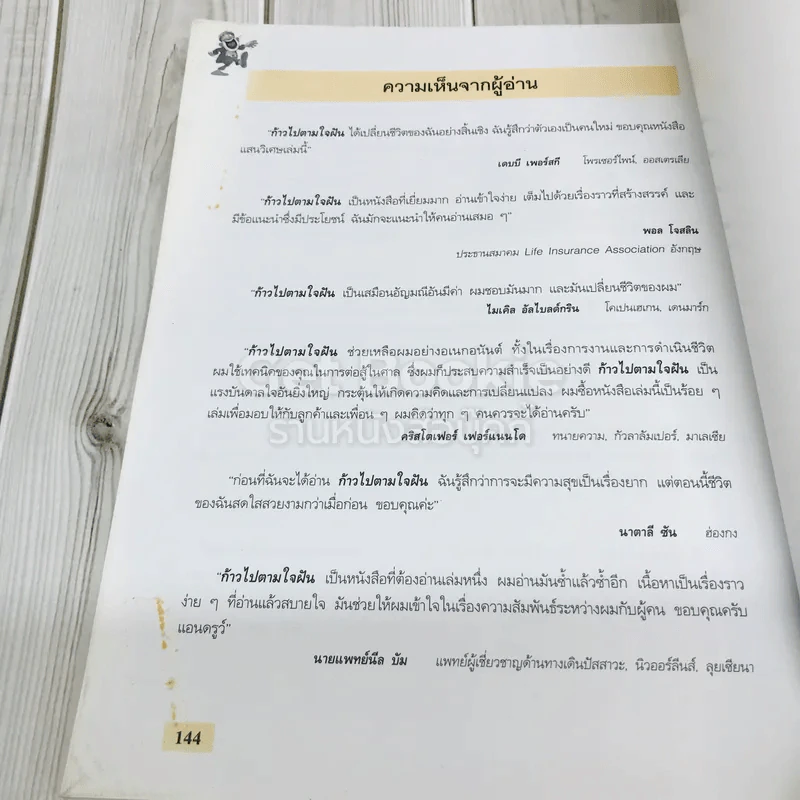 ความเห็นจากผู้อ่าน
"ก้าวไปตามใจฝัน ได้เปลี่ยนชีวิตของฉันอย่างสิ้นเชิง ฉันรู้สึกว่าตัวเองเป็นคนใหม่ ขอบคุณหนังสือ
แสนวิเศษเล่มนี้"
เดบบี เพอร์สกี โพรเซอร์ไพน์, ออสเตรเลีย
"ก้าวไปตามใจฝัน เป็นหนังสือที่เยี่ยมมาก อ่านเข้าใจง่าย เต็มไปด้วยเรื่องราวที่สร้างสรรค์ และ
มีข้อแนะนำซึ่งมีประโยชน์ ฉันมักจะแนะนำให้คนอ่านเสมอ ๆ"
พอล โจสลิน
ประธานสมาคม Life Insurance Association อังกฤษ
"ก้าวไปตามใจฝัน เป็นเสมือนอัญมณีอันมีค่า ผมชอบมันมาก และมันเปลี่ยนชีวิตของผม"
ไมเคิล อัลไบลด์กริน โคเปนเฮเกน, เดนมาร์ก
"ก้าวไปตามใจฝัน ช่วยเหลือผมอย่างอเนกอนันต์ ทั้งในเรื่องการงานและการดำเนินชีวิต
ผมใช้เทคนิคของคุณในการต่อสู้ในศาล ซึ่งผมก็ประสบความสำเร็จเป็นอย่างดี ก้าวไปตามใจฝัน เป็น
แรงบันดาลใจอันยิ่งใหญ่ กระตุ้นให้เกิดความคิดและการเปลี่ยนแปลง ผมซื้อหนังสือเล่มนี้เป็นร้อย ๆ
เล่มเพื่อมอบให้กับลูกค้าและเพื่อน ๆ ผมคิดว่าทุก ๆ คนควรจะได้อ่านครับ"
คริสโตเฟอร์ เฟอร์แนนโด ทนายความ, กัวลาลัมเปอร์, มาเลเซีย
"ก่อนที่ฉันจะได้อ่าน ก้าวไปตามใจฝัน ฉันรู้สึกว่าการจะมีความสุขเป็นเรื่องยาก แต่ตอนนี้ชีวิต
ของฉันสดใสสวยงามกว่าเมื่อก่อน ขอบคุณค่ะ"
นาตาลี ซัน ฮ่องกง
"ก้าวไปตามใจฝัน เป็นหนังสือที่ต้องอ่านเล่มหนึ่ง ผมอ่านมันซ้ำแล้วซ้ำอีก เนื้อหาเป็นเรื่องราว
ง่าย ๆ ที่อ่านแล้วสบายใจ มันช่วยให้ผมเข้าใจในเรื่องความสัมพันธ์ระหว่างผมกับผู้คน ขอบคุณครับ
แอนดรูว์"
นายแพทย์นีล บัม แพทย์ผู้เชี่ยวชาญด้านทางเดินปัสสาวะ, นิวออร์ลีนส์, ลุยเซียนา
144